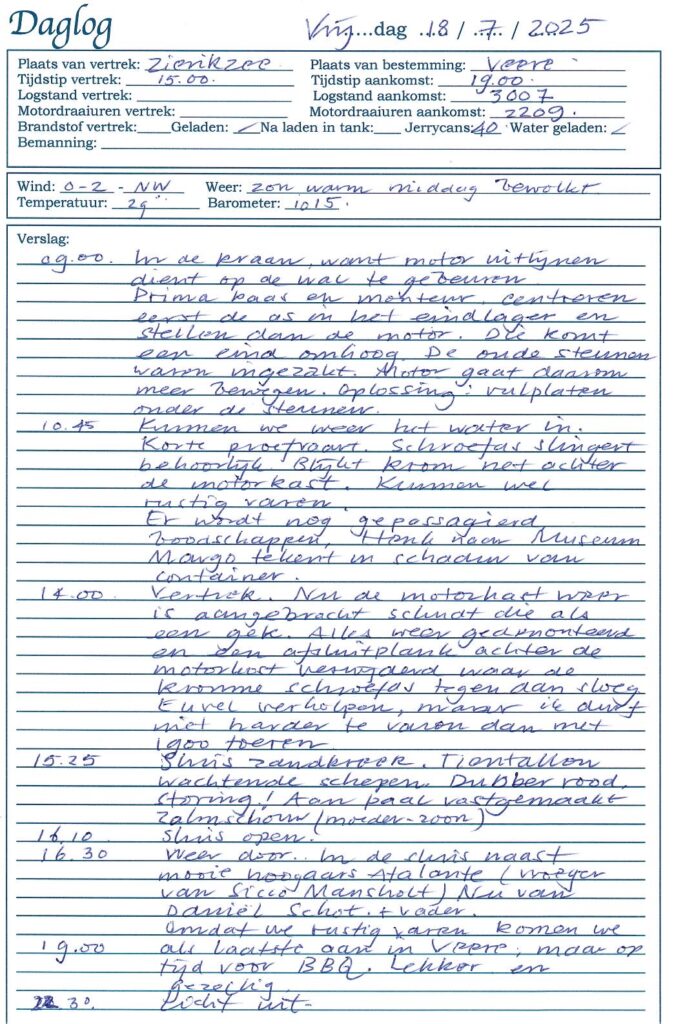 Daglog
Vrij...dag 18 / 7 / 2025
Plaats van vertrek: Zierikzee Plaats van bestemming: Veere
Tijdstip vertrek: 15.00. Tijdstip aankomst: 19.00.
Logstand vertrek: Logstand aankomst: 3007
Motordraaiuren vertrek: Motordraaiuren aankomst: 2209.
Brandstof vertrek: Geladen: Na laden in tank: Jerrycans: 40 Water geladen:
Bemanning:
Wind: 0-2 - NW Weer: zon warm middag bewolkt
Temperatuur: 29° Barometer: 1015.
Verslag:
09.00. In de kraan, want motor uitlijnen
dient op de wal te gebeuren
Prima baas en monteur. centreren
eerst de as in het eindlager en
stellen dan de motor. Die komt
een eind omhoog. De oude steunen
waren ingezakt. Motor gaat daarom
meer bewegen. Oplossing: vulplaten
onder de steunen.
10.45 Kunnen we weer het water in.
Korte proefvaart. Schroefas slingert
behoorlijk. Blijkt krom net achter
de motorkast. Kunnen wel
rustig varen.
Er wordt nog gepassagierd
boodschappen, Henk naar Museum
Margo tekent in schaduw van
container.
14.00 Vertrek. Nu de motorkast weer
is aangebracht schudt die als
een gek. Alles weer gedemonteerd
en een afsluitplank achter de
motorkast verwijderd waar de
kromme schroefas tegen aan sloeg
Euvel verholpen, maar ik durf
niet harder te varen dan met
1900 toeren
15.25 Sluis Zandkreek. Tientallen
wachtende schepen. Dubber rood,
storing! Aan paal vastgemaakt
Zalmschouw (moeder-zoon)
16.10 Sluis open.
16.30 Weer door. In de sluis naast
mooie hoogaars Atalante (vroeger
van Sicco Mansholt) Nu van
Daniël Schot. + vader.
Omdat we rustig varen komen we
19.00 als laatste aan in Veere, maar op
tijd voor BBQ. Lekker en
gezellig
22.30. Licht uit-